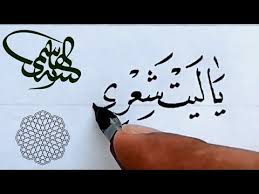 يَا لَيْتَ شَعْرِي